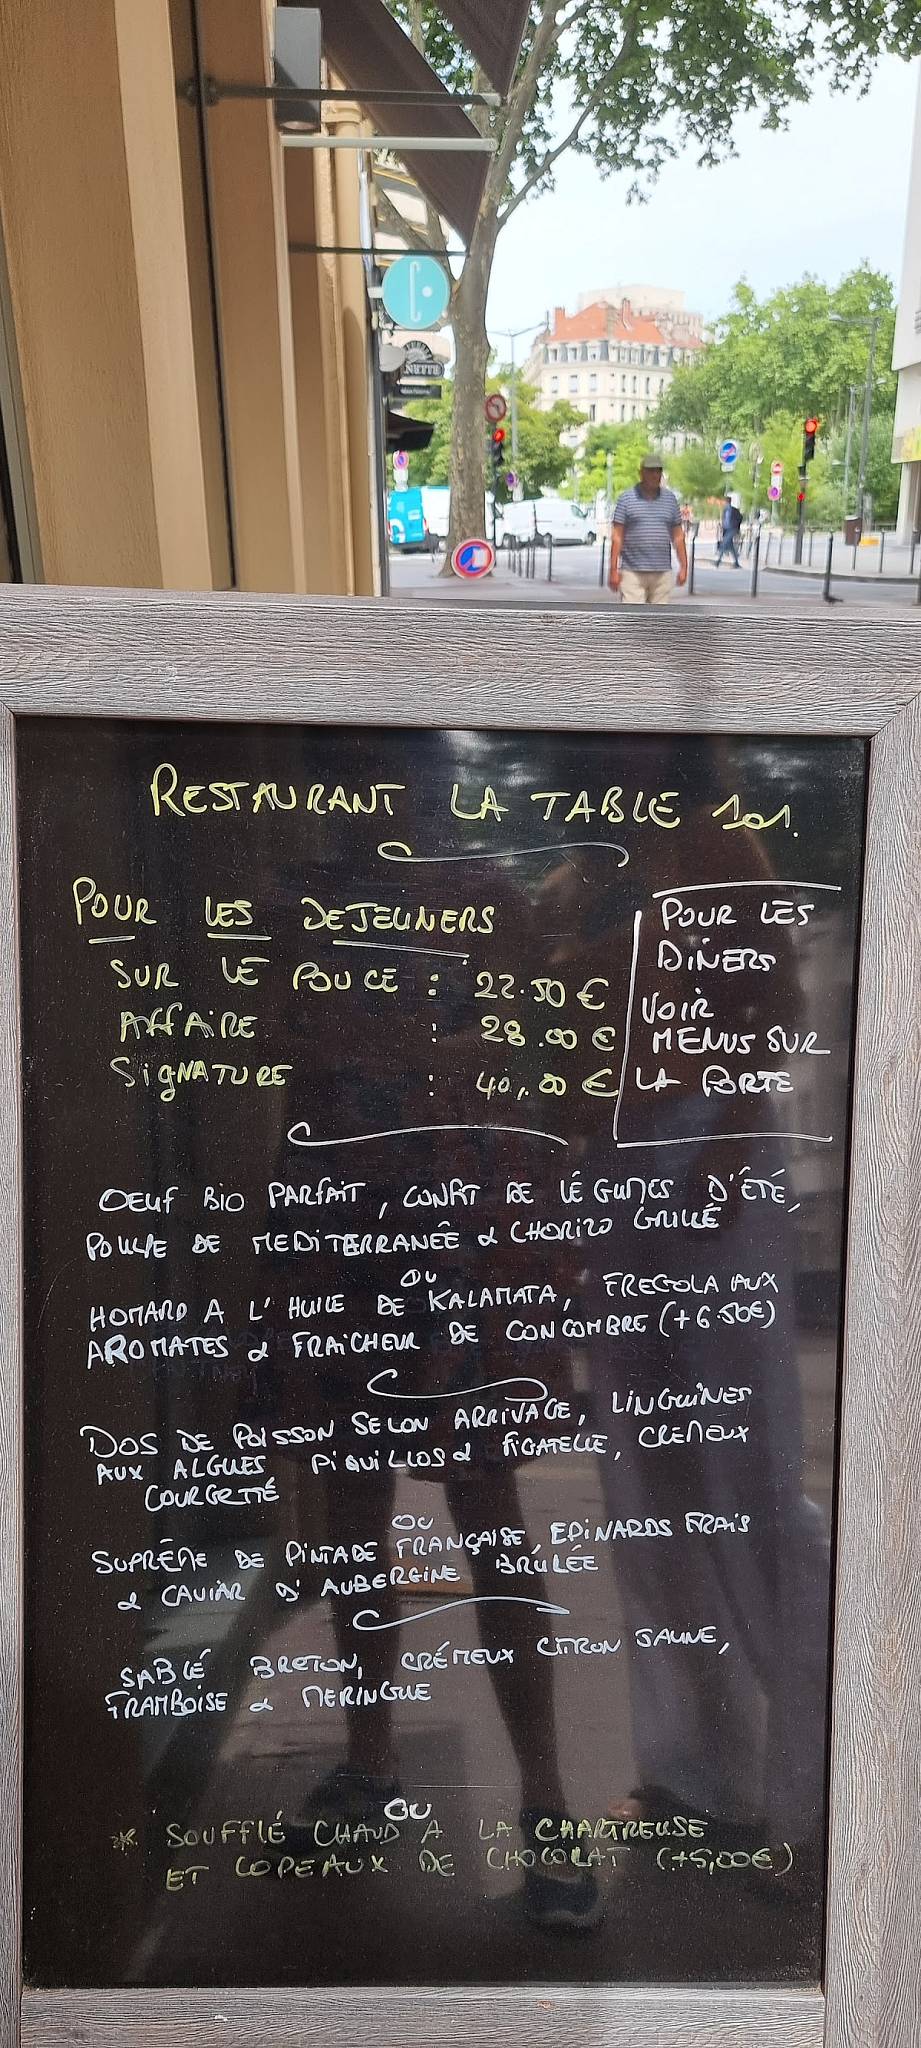 NETTE
RESTAURANT LA TABLE 101.
POUR LES DEJEUNERS
SUR LE POUCE : 22.50 €
AFFAIRE : 28.00 €
SIGNATURE : 40,00 €
POUR LES
DINERS
VOIR
MENUS SUR
LA PORTE
OEUF BIO PARFAIT, CONFIT DE LÉGUMES D'ÉTÉ,
POULPE DE MEDITERRANÊE & CHORIZO GRILLÉ
OU
HOMARD A L'HUILE DE KALAMATA, FREGOLA AUX
AROMATES & FRAÎCHEUR DE CONCOMBRE (+6.50€)
DOS DE POISSON SELON ARRIVAGE, LINGUINES
AUX ALGUES PIQUILLOS & FIGATELLE, CREMEUX
COURGETTE
OU
SUPRÊME DE PINTADE FRANÇAISE, EPINARDS FRAIS
& CAVIAR D'AUBERGINE BRULÉE
SABLÉ BRETON, CRÉMEUX CITRON JAUNE,
FRAMBOISE & MERINGUE
OU
* SOUFFLÉ CHAUD A LA CHARTREUSE
ET COPEAUX DE CHOCOLAT (+5,00€)